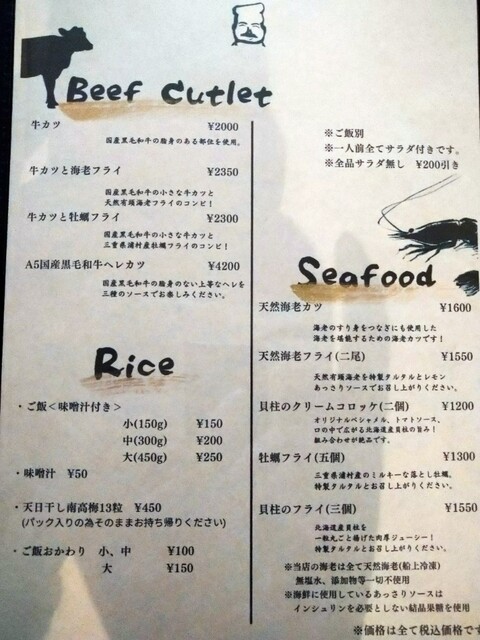 Beef Cutlet
牛カツ ¥2000
国産黒毛和牛の脂身のある部位を使用。
牛カツと海老フライ ¥2350
国産黒毛和牛の小さな牛カツと
天然有頭海老フライのコンビ！
牛カツと牡蠣フライ ¥2300
国産黒毛和牛の小さな牛カツと
三重県浦村産牡蠣フライのコンビ！
A5国産黒毛和牛ヘレカツ ¥4200
国産黒毛和牛の脂身のない上等なヘレを
三種のソースでお楽しみください。
Rice
・ご飯＜味噌汁付き＞
小(150g) ¥150
中(300g) ¥200
大(450g) ¥250
・味噌汁 ¥50
・天日干し南高梅13粒 ¥450
(パック入りの為そのままお持ち帰りください)
・ご飯おかわり 小、中 ¥100
大 ¥150
※ご飯別
※一人前全てサラダ付きです。
※全品サラダ無し ¥200引き
Seafood
天然海老カツ ¥1600
海老のすり身をつなぎにも使用した
海老を堪能するための海老カツです！
天然海老フライ(二尾) ¥1550
天然有頭海老を特製タルタルとレモン
あっさりソースでお召し上がりください。
貝柱のクリームコロッケ(二個) ¥1200
オリジナルベシャメル、トマトソース、
口の中で広がる北海道産貝柱の旨み！
組み合わせが絶品です。
牡蠣フライ(五個) ¥1300
三重県浦村産のミルキーな落とし牡蠣。
特製タルタルとお召し上がりください。
貝柱のフライ(三個) ¥1550
北海道産貝柱を
一粒丸ごと揚げた肉厚ジューシー！
特製タルタルとお召し上がりください。
※当店の海老は全て天然海老(船上冷凍)
無塩水、添加物等一切不使用
※海鮮に使用しているあっさりソースは
インシュリンを必要としない結晶果糖を使用
※価格は全て税込価格です